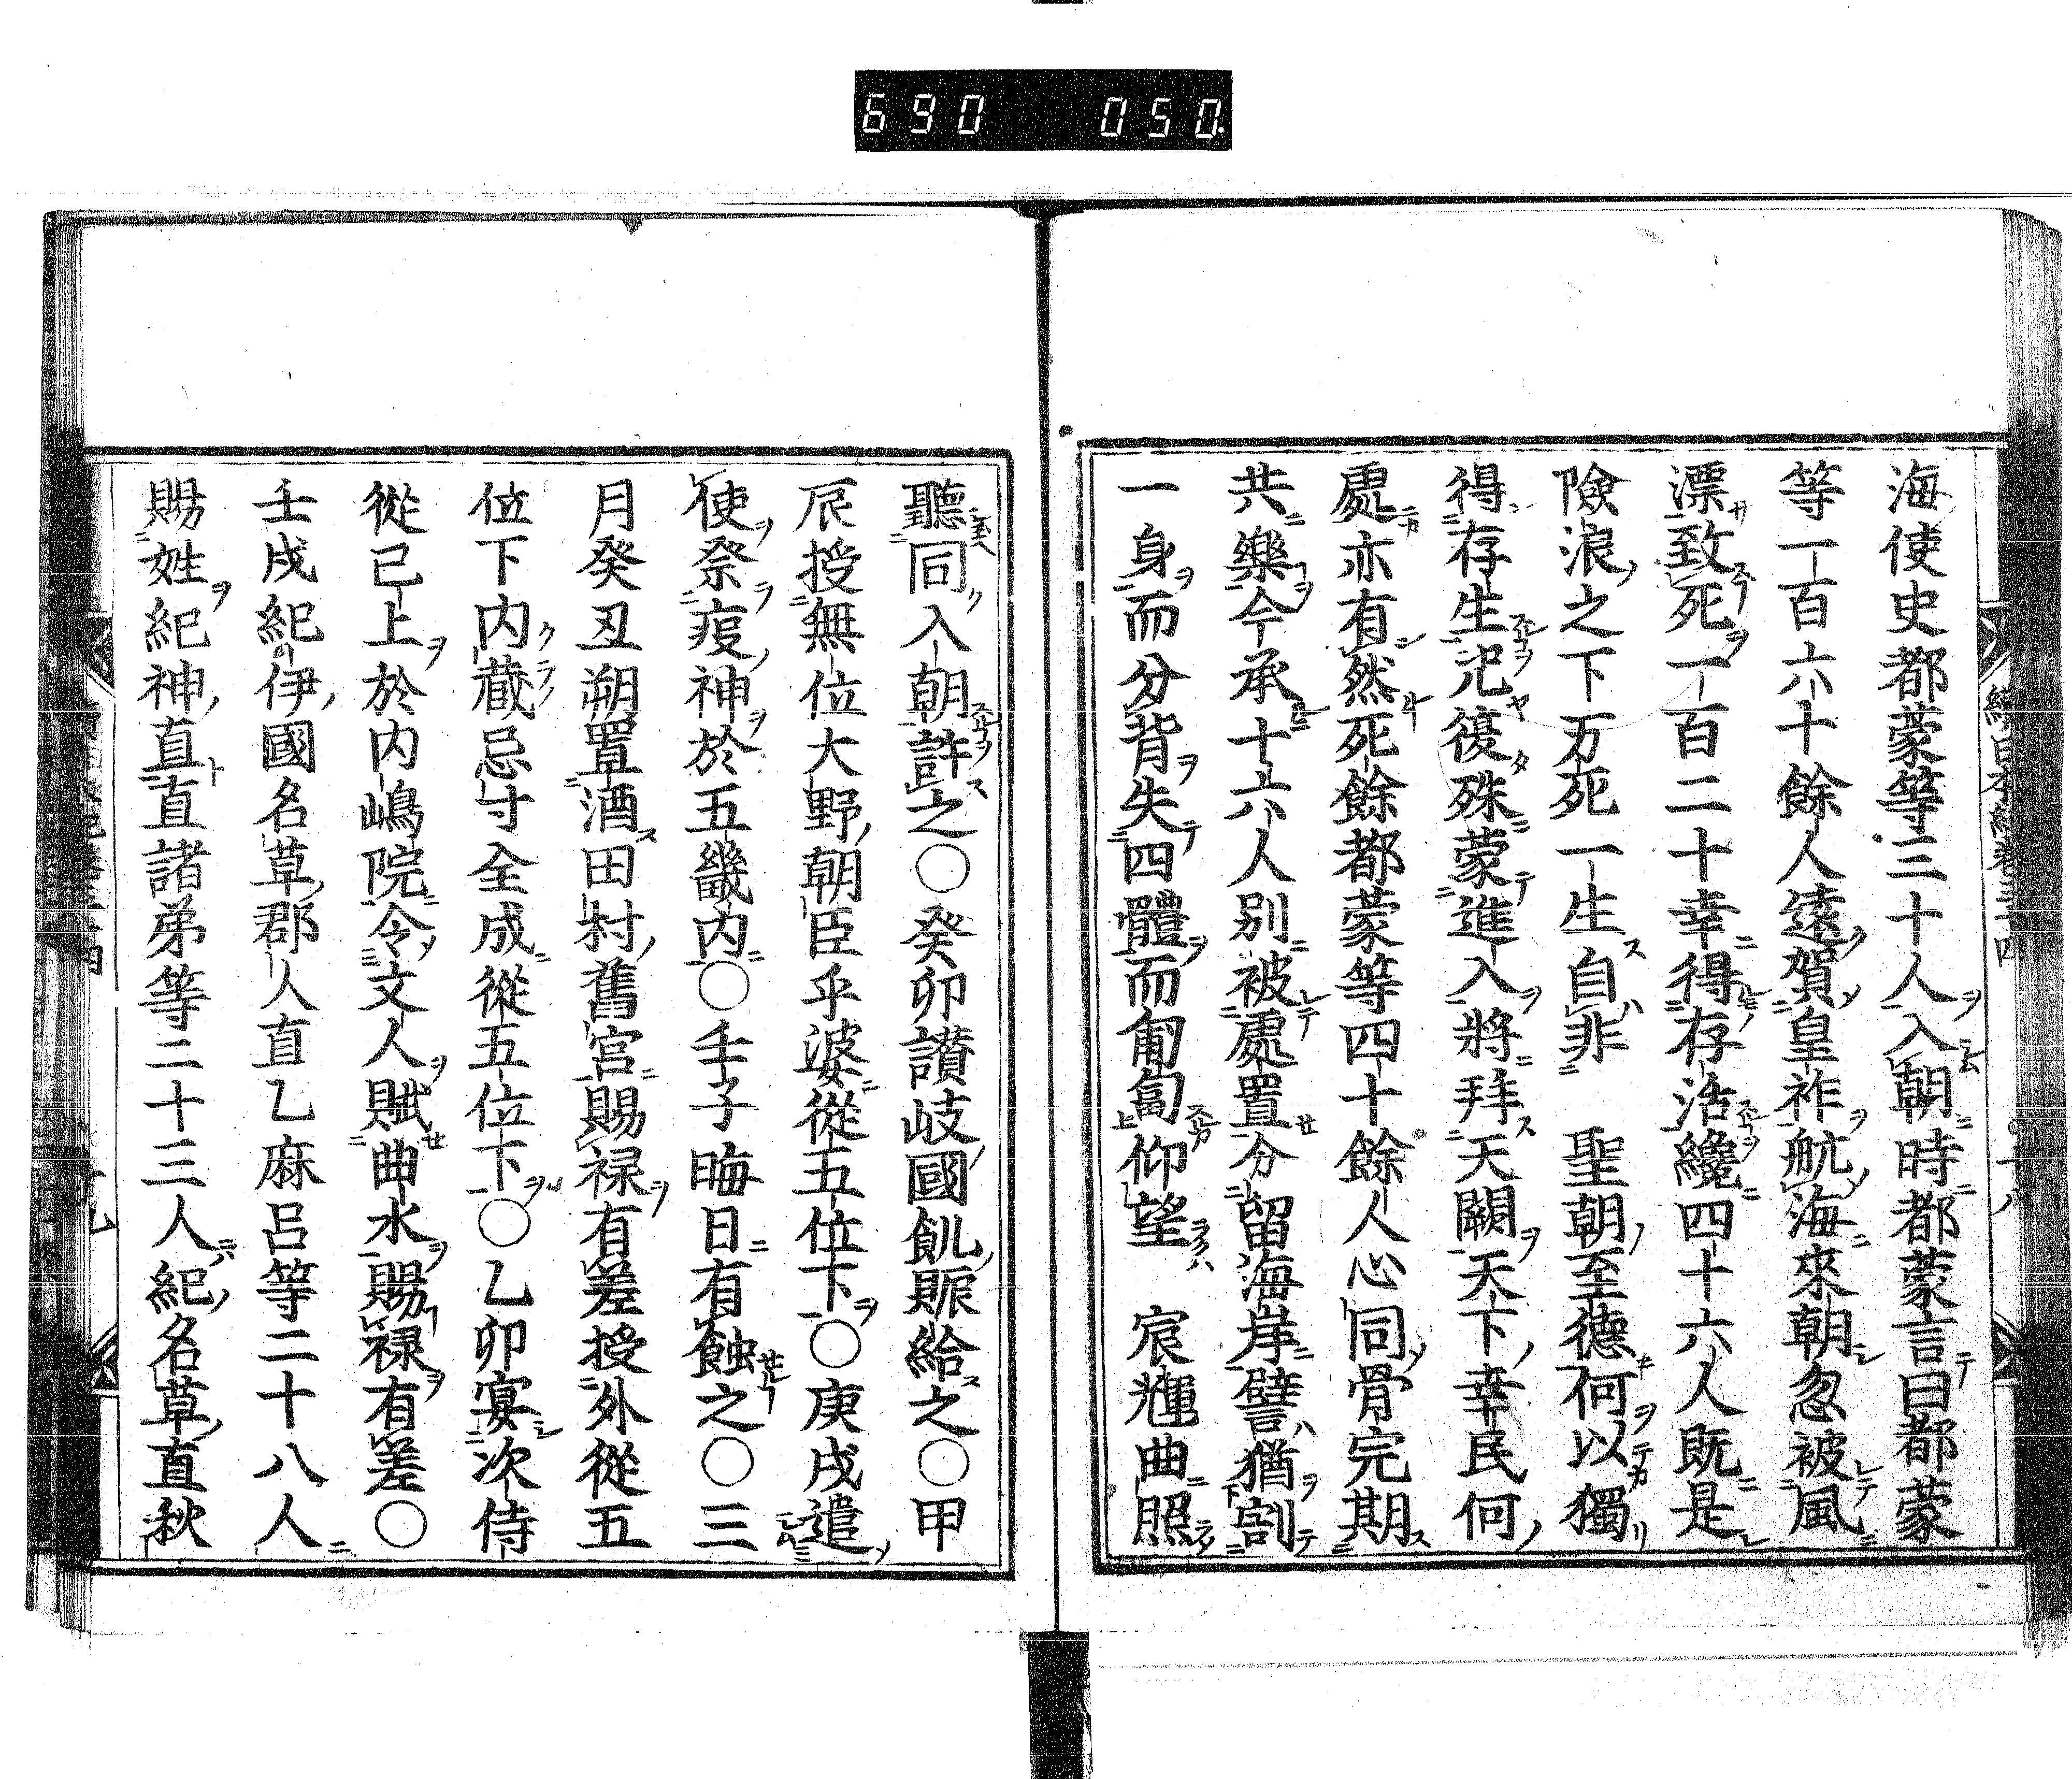 690 050.
海使史都蒙等三十人入朝時都蒙言曰都蒙
等一百六十餘人遠賀皇祚航海來朝忽被風
漂致死一百二十幸得存活纔四十六人既是
險浪之下万死一生自非　聖朝至德何以獨
得存生况復殊蒙進入將拜天闕天下幸民何
處亦有然死餘都蒙等四十餘人心同骨完期
共樂今承十六人別被處置分留海岸譬猶割
一身而分背失四體而匍匐仰望　宸輝曲照
聽同入朝許之○癸卯讃岐國飢賑給之○甲
辰授無位大野朝臣乎婆從五位下○庚戌遣
使祭疫神於五畿内○壬子晦日有蝕之○三
月癸丑朔置酒田村舊宮賜禄有差授外從五
位下内藏忌寸全成從五位下○乙卯宴次侍
從已上於内嶋院令文人賦曲水賜禄有差○
壬戌紀伊國名草郡人直乙麻呂等二十八人
賜姓紀神直直諸弟等二十三人紀名草直秋